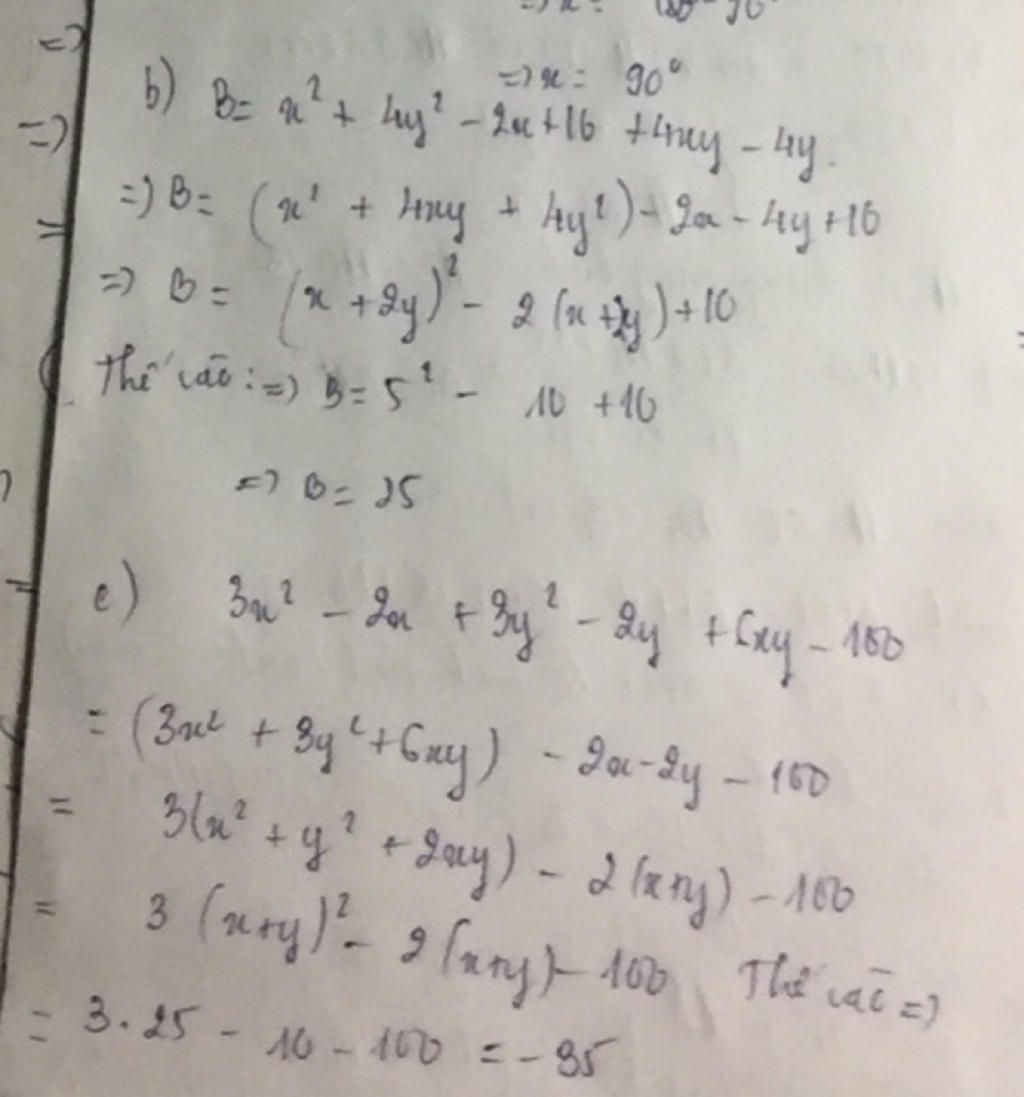 => x = 90°
b) B = x² + 4y² - 2x + 10 + 4xy - 4y.
=> B = (x² + 4xy + 4y²) - 2x - 4y + 10
=> B = (x + 2y)² - 2(x + 2y) + 10
Thế vào: => B = 5² - 10 + 10
=> B = 25
c) 3x² - 2x + 3y² - 2y + 6xy - 100
= (3x² + 3y² + 6xy) - 2x - 2y - 100
= 3(x² + y² + 2xy) - 2(x+y) - 100
= 3(x+y)² - 2(x+y) - 100 Thế vào =>
= 3.25 - 10 - 100 = -35